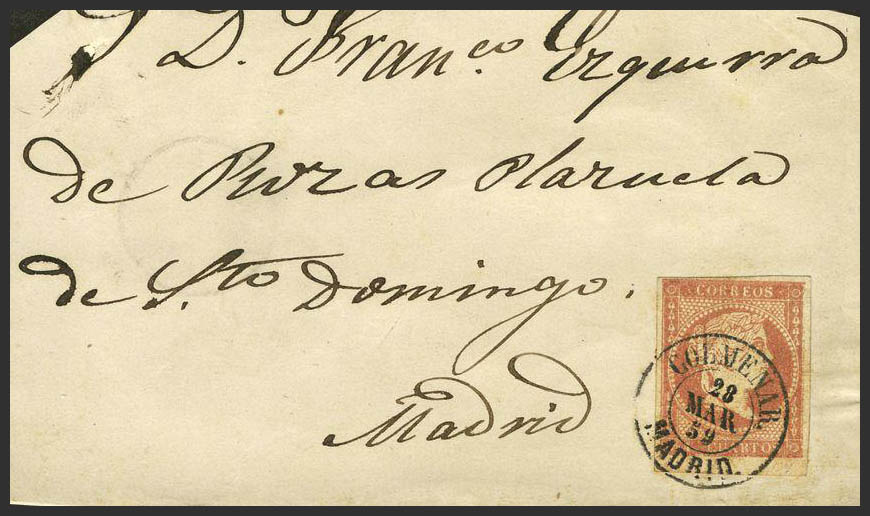 D. Franco Ezquerra
de Rozas Plazuela
de Sto Domingo.
Madrid
CORREOS
COLMENAR
28
MAR
59
MADRID.
CUARTOS